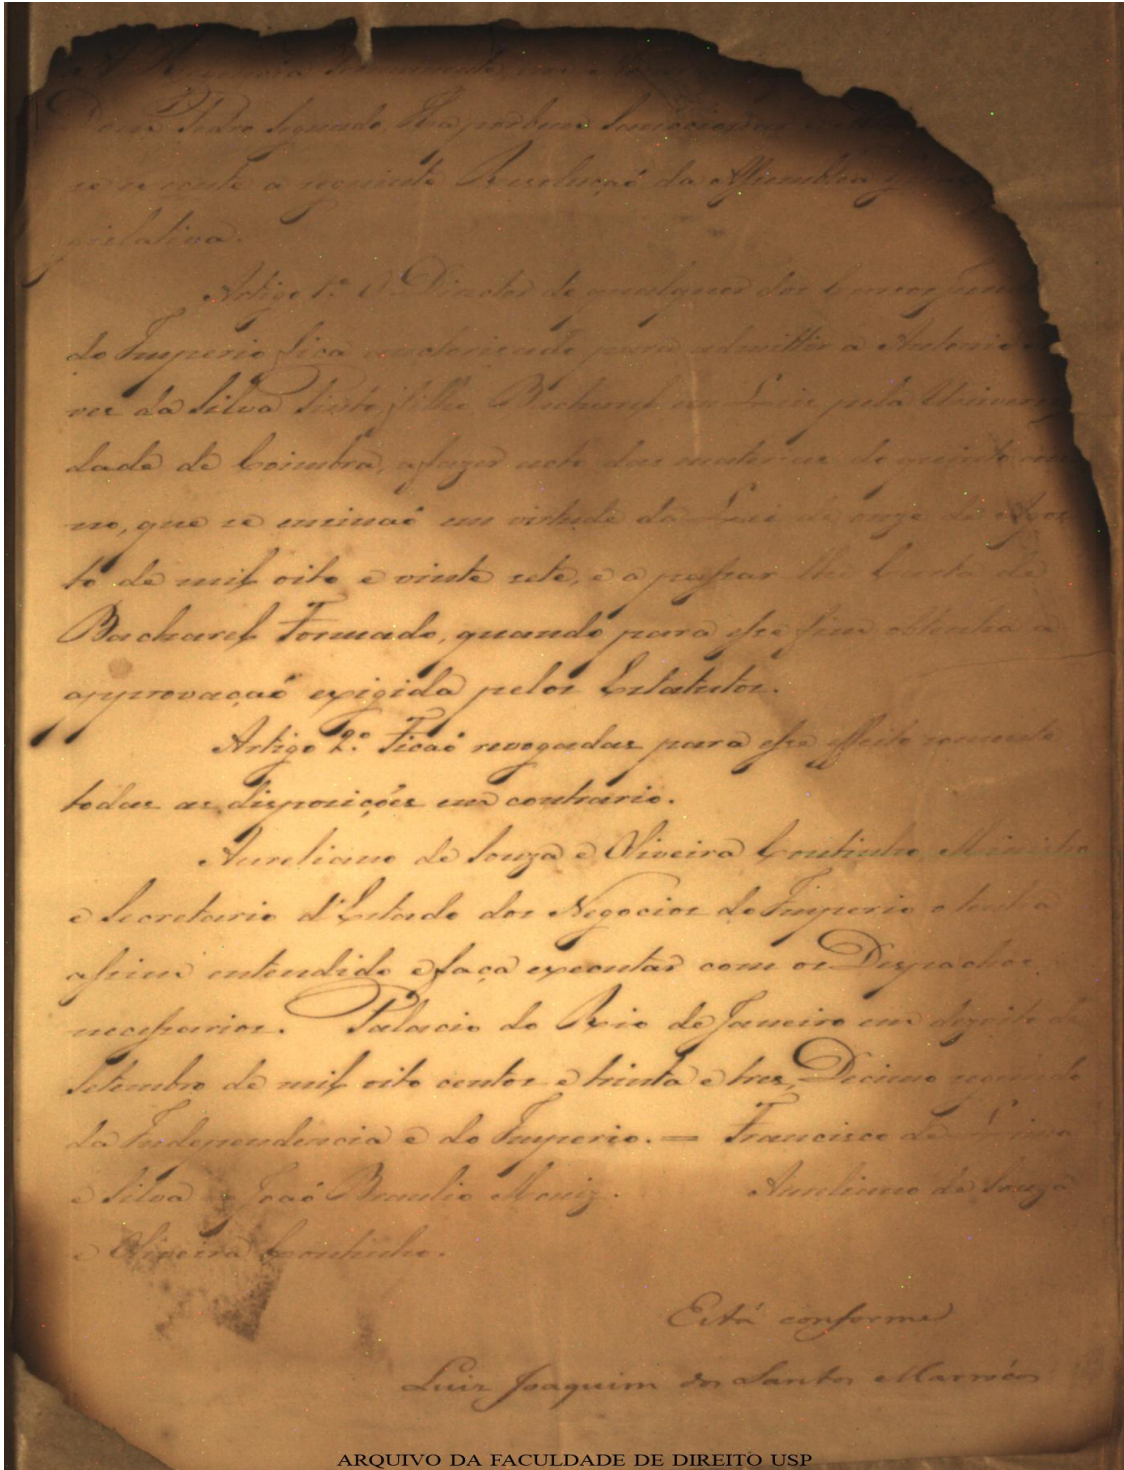 A Regencia Permanente em Nome
Dom Pedro Segundo, Ha por bem Sanccionar
se execute a seguinte Resoluçaõ da Assemblea
gislativa.
Artigo 1.º O Director de qualquer dos Cursos
do Imperio fica authorisado para admittir a Antonio
ves da Silva Pinto filho, Bacharel em Leis pela Univer
dade de Coimbra, a fazer acto das materias do quinto
no, que se ensinaõ em virtude da Lei de onze de Agos
to de mil oito e vinte sete, e a passar-lhe Carta de
Bacharel Formado, quando para esse fim obtenha a
approvaçaõ exigida pelos Estatutos.
Artigo 2.º Ficaõ revogadas para esse effeito somente
todas as disposições em contrario.
Aureliano de Souza e Oliveira Coutinho Ministro
e Secretario d'Estado dos Negocios do Imperio o tenha
assim entendido e faça executar com os Despachos
necessarios. Palacio do Rio de Janeiro em dezoito de
Setembro de mil oito centos e trinta e tres, Decimo segundo
da Independencia e do Imperio. = Francisco de Lima
e Silva João Braulio Moniz. Aureliano de Souza
e Oliveira Coutinho.
Está conforme
Luiz Joaquim dos Santos Marrócos
ARQUIVO DA FACULDADE DE DIREITO USP